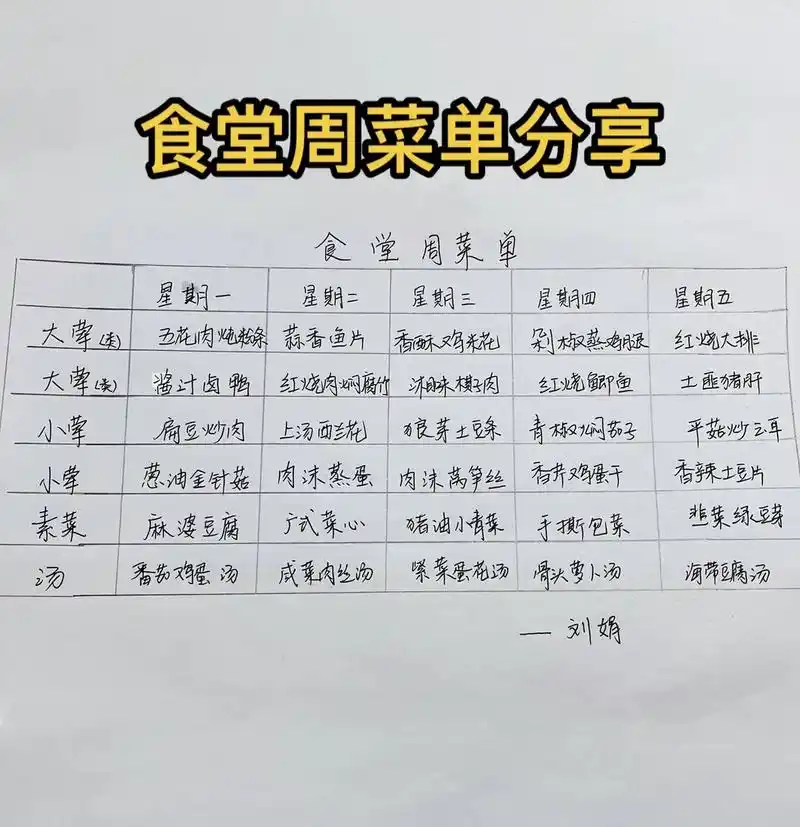 食堂周菜单分享
食堂周菜单
星期一 星期二 星期三 星期四 星期五
大荤(类) 五花肉炖粉条 蒜香鱼片 香酥鸡米花 剁椒蒸鸡腿 红烧大排
大荤(类) 酱汁卤鸭 红烧肉焖腐竹 沐味棋子肉 红烧鲫鱼 土匪猪肝
小荤 扁豆炒肉 上汤西兰花 狼芽土豆条 青椒焖茄子 平菇炒云耳
小荤 葱油金针菇 肉沫蒸蛋 肉沫莴笋丝 香芹鸡蛋干 香辣土豆片
素菜 麻婆豆腐 广式菜心 猪油小青菜 手撕包菜 韭菜绿豆芽
汤 番茄鸡蛋汤 咸菜肉丝汤 紫菜蛋花汤 骨头萝卜汤 海带豆腐汤
— 刘娟